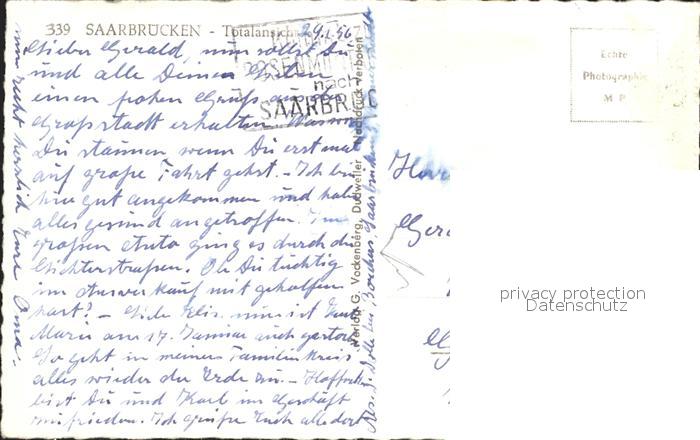 339 SAARBRÜCKEN - Totalansicht
29.1.56
Lieber Gerald, nun sollst Du
und alle Deinen Lieben
einen frohen Gruß aus der
Großstadt erhalten. Warum
Du staunen wenn Du erst mal
auf große Fahrt gehst. - Ich bin
hier gut angekommen und habe
alles gesund angetroffen. Im
großen Auto ging es durch die
Lichterstraßen. Ob Du tüchtig
im Ausverkauf mit geholfen
hast? - Liebe Elis. nun ist
Marie am 17. Januar auch gestorben
So geht in meinem Familienkreis
alles wieder der Erde zu. - Hoffentlich
bist Du und Karl im Geschäft
zufrieden. Ich grüße Euch alle dort
nun recht herzlich Eure Oma.
nach
SAARBRÜC
Verlag G. Vockenberg, Dudweiler Nachdruck verboten
Echte
Photographie
M P
privacy protection
Datenschutz